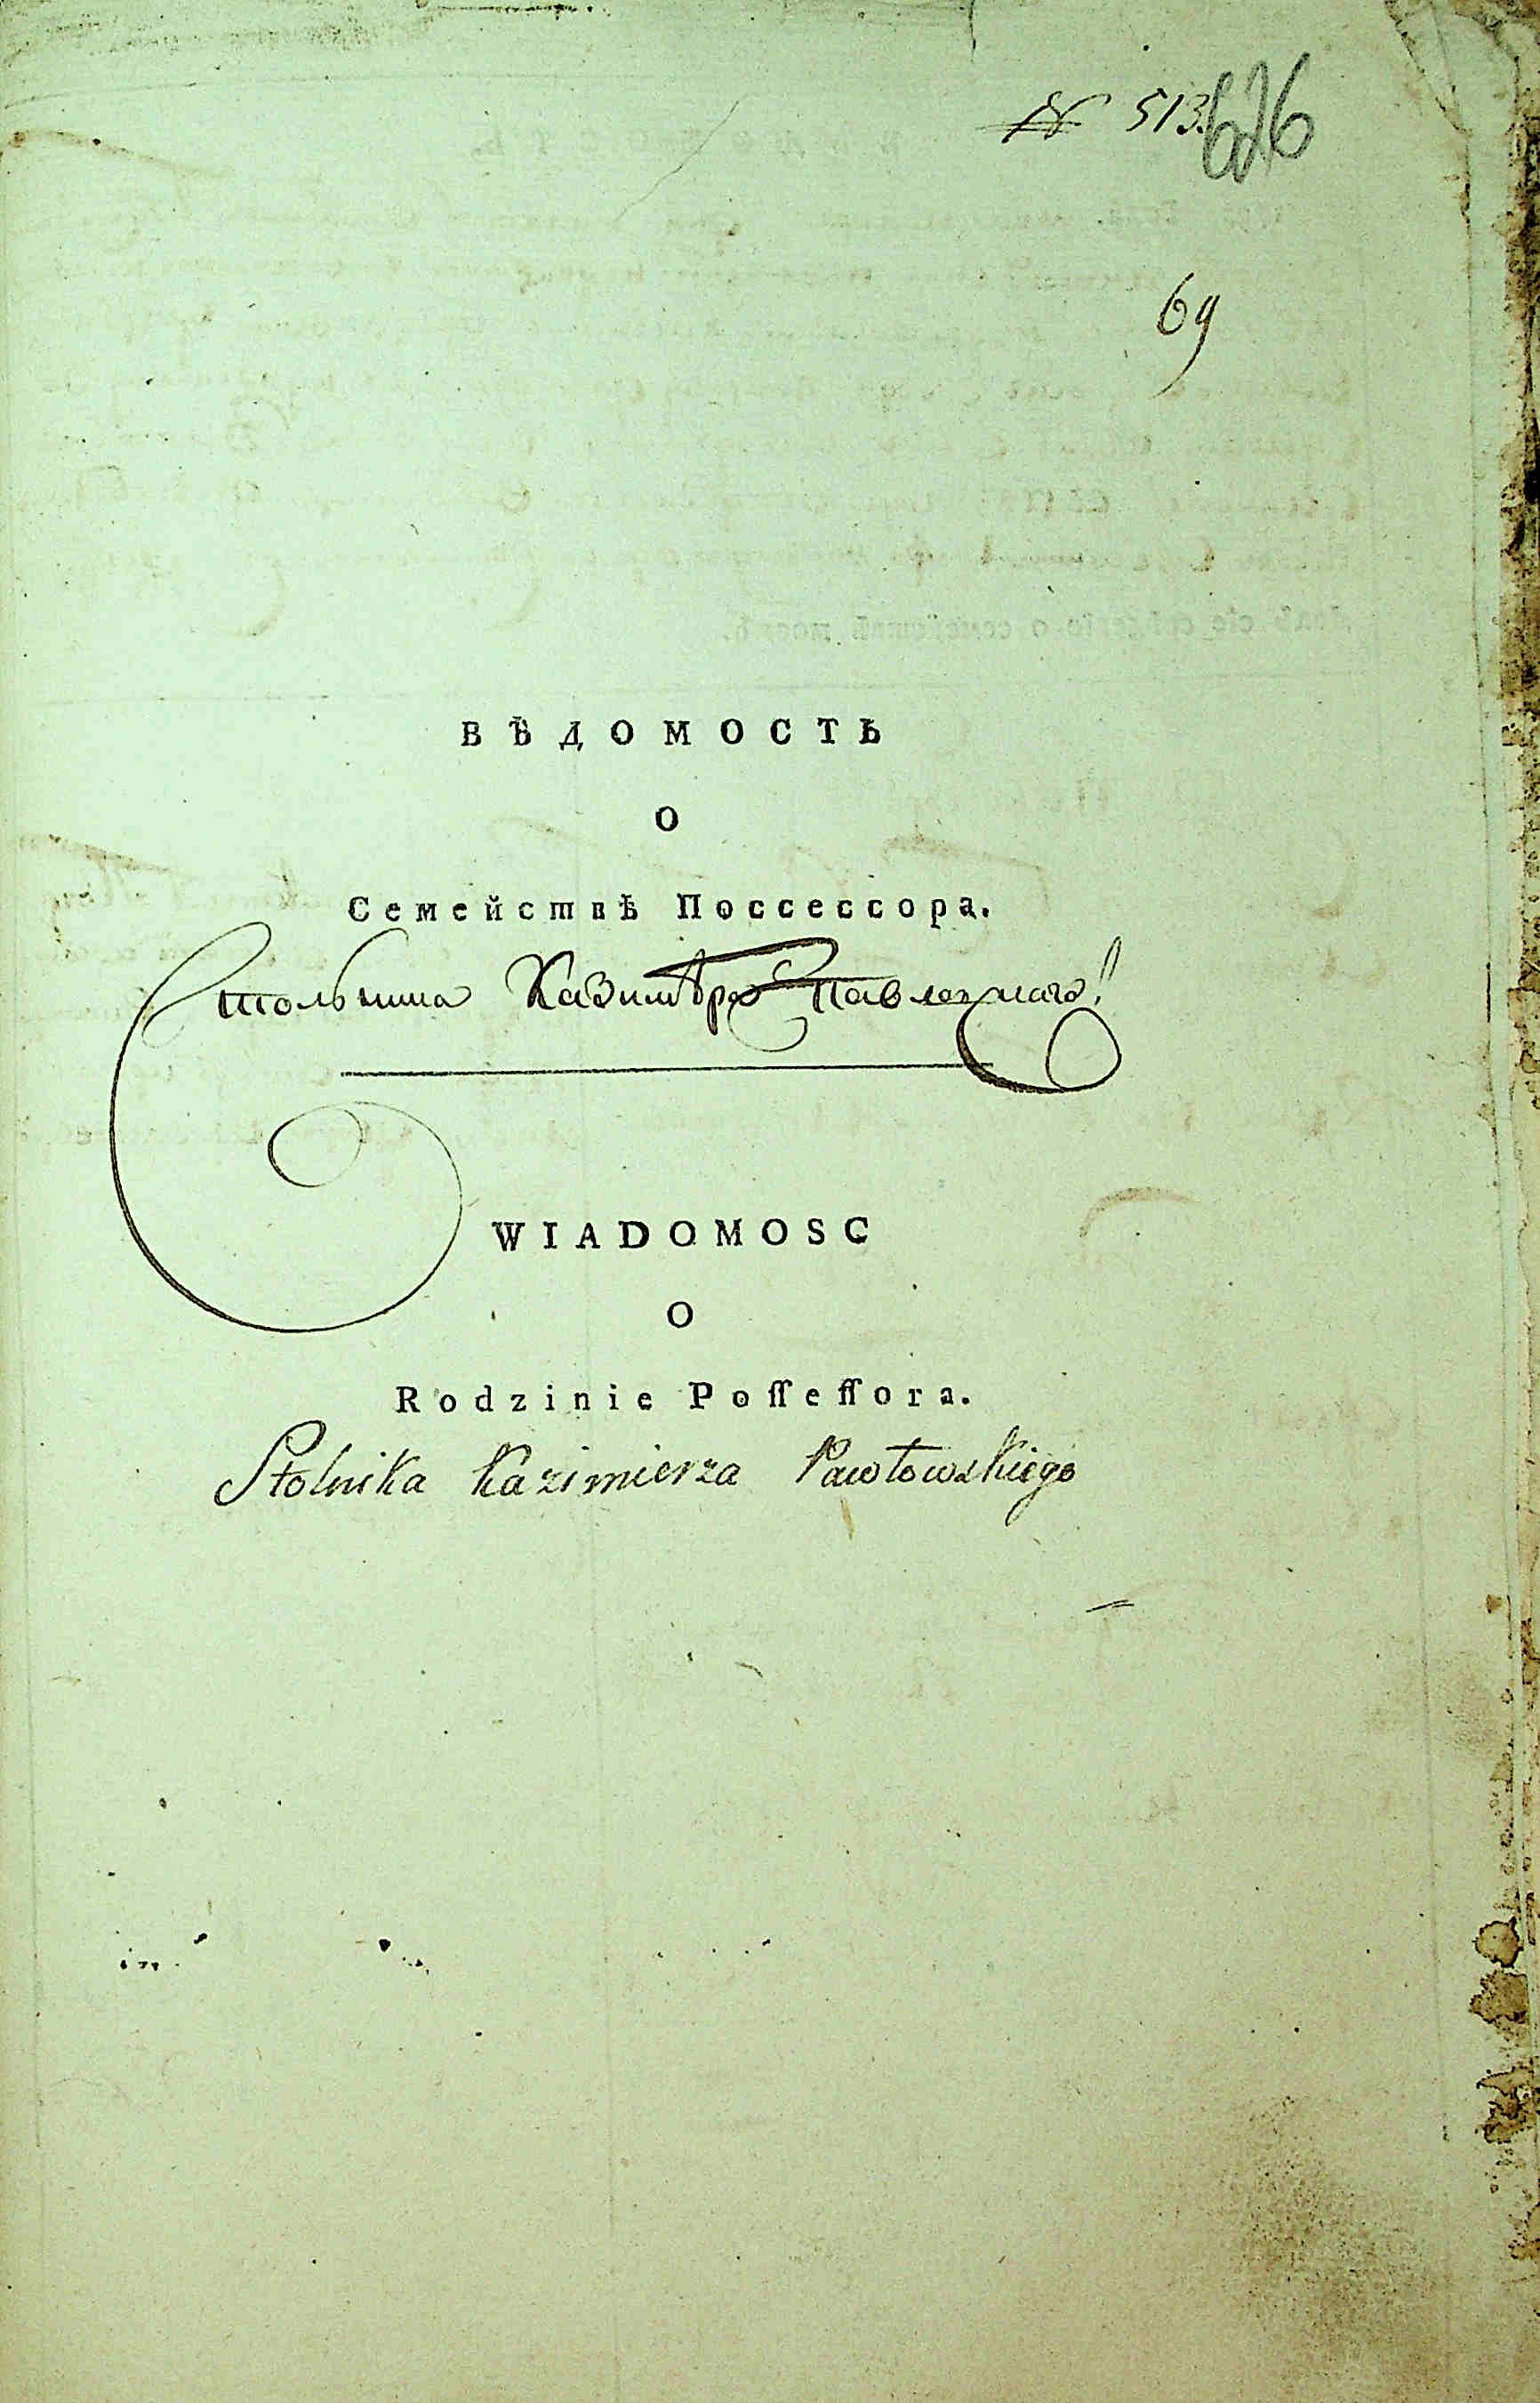 № 513. 626
69
ВѢДОМОСТЬ
О
Семействѣ Поссессора.
Стольника Казимѣра Павловскаго!
WIADOMOSC
O
Rodzinie Poſſeſſora.
Stolnika Kazimierza Pawłowskiego